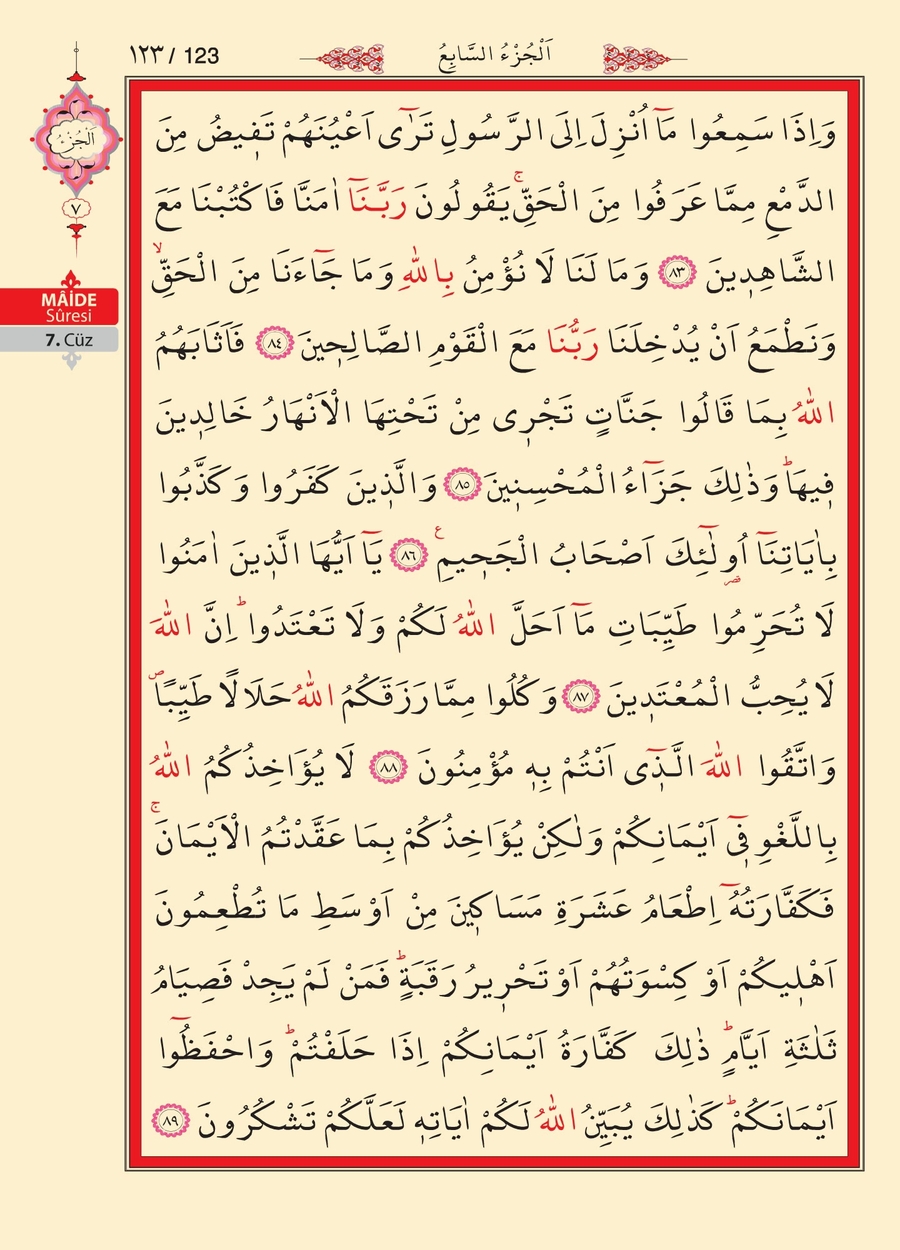 ١٢٣ / 123
اَلْجُزْءُ السَّابِعُ
اَلْجُزْءُ
٧
MÂİDE
Sûresi
7. Cüz
وَاِذَا سَمِعُوا مَٓا اُنْزِلَ اِلَى الرَّسُولِ تَرٰٓى اَعْيُنَهُمْ تَف۪يضُ مِنَ
الدَّمْعِ مِمَّا عَرَفُوا مِنَ الْحَقِّۚ يَقُولُونَ رَبَّنَٓا اٰمَنَّا فَاكْتُبْنَا مَعَ
الشَّاهِد۪ينَ ﴿٨٣﴾ وَمَا لَنَا لَا نُؤْمِنُ بِاللّٰهِ وَمَا جَٓاءَنَا مِنَ الْحَقِّۙ
وَنَطْمَعُ اَنْ يُدْخِلَنَا رَبُّنَا مَعَ الْقَوْمِ الصَّالِح۪ينَ ﴿٨٤﴾ فَاَثَابَهُمُ
اللّٰهُ بِمَا قَالُوا جَنَّاتٍ تَجْر۪ى مِنْ تَحْتِهَا الْاَنْهَارُ خَالِد۪ينَ
ف۪يهَاۜ وَذٰلِكَ جَزَٓاءُ الْمُحْسِن۪ينَ ﴿٨٥﴾ وَالَّذ۪ينَ كَفَرُوا وَكَذَّبُوا
بِاٰيَاتِنَٓا اُو۬لٰٓئِكَ اَصْحَابُ الْجَح۪يمِ ﴿٨٦﴾ يَٓا اَيُّهَا الَّذ۪ينَ اٰمَنُوا
لَا تُحَرِّمُوا طَيِّبَاتِ مَٓا اَحَلَّ اللّٰهُ لَكُمْ وَلَا تَعْتَدُواۜ اِنَّ اللّٰهَ
لَا يُحِبُّ الْمُعْتَد۪ينَ ﴿٨٧﴾ وَكُلُوا مِمَّا رَزَقَكُمُ اللّٰهُ حَلَالًا طَيِّبًاۖ
وَاتَّقُوا اللّٰهَ الَّذ۪ٓى اَنْتُمْ بِه۪ مُؤْمِنُونَ ﴿٨٨﴾ لَا يُؤَاخِذُكُمُ اللّٰهُ
بِاللَّغْوِ ف۪ٓى اَيْمَانِكُمْ وَلٰكِنْ يُؤَاخِذُكُمْ بِمَا عَقَّدْتُمُ الْاَيْمَانَۚ
فَكَفَّارَتُهُٓ اِطْعَامُ عَشَرَةِ مَسَاك۪ينَ مِنْ اَوْسَطِ مَا تُطْعِمُونَ
اَهْل۪يكُمْ اَوْ كِسْوَتُهُمْ اَوْ تَحْر۪يرُ رَقَبَةٍۜ فَمَنْ لَمْ يَجِدْ فَصِيَامُ
ثَلٰثَةِ اَيَّامٍۜ ذٰلِكَ كَفَّارَةُ اَيْمَانِكُمْ اِذَا حَلَفْتُمْۜ وَاحْفَظُٓوا
اَيْمَانَكُمْۜ كَذٰلِكَ يُبَيِّنُ اللّٰهُ لَكُمْ اٰيَاتِه۪ لَعَلَّكُمْ تَشْكُرُونَ ﴿٨٩﴾